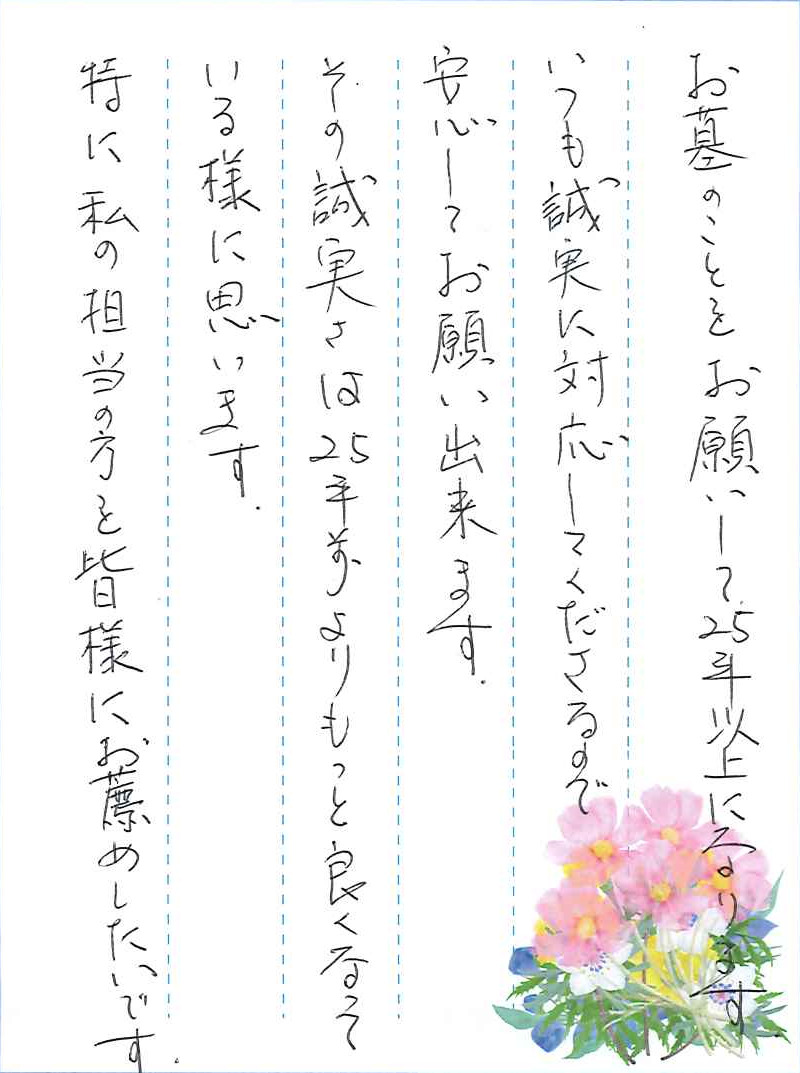 お墓のことをお願いして25年以上になります.
いつも誠実に対応してくださるので
安心してお願い出来ます.
その誠実さは25年前よりもっと良くなって
いる様に思います.
特に私の担当の方を皆様にお薦めしたいです.